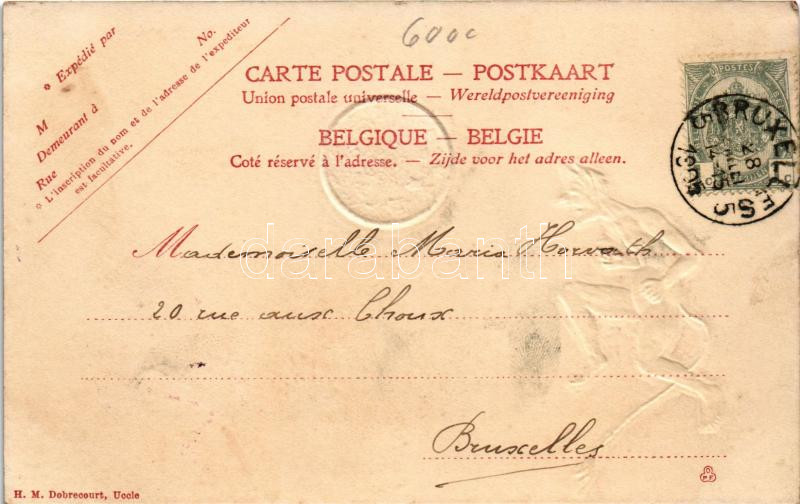 6000
* Expédié par
No.
M
Demeurant à
Rue
* L'inscription du nom et de l'adresse de l'expediteur
est facultative.
CARTE POSTALE — POSTKAART
Union postale universelle — Wereldpostvereeniging
BELGIQUE — BELGIE
Coté réservé à l'adresse. — Zijde voor het adres alleen.
POSTES
BRUXELLES 5
28
1905
Mademoiselle Maria Horvath
20 rue aux Choux
Bruxelles
darabanth
H. M. Dobrecourt, Uccle